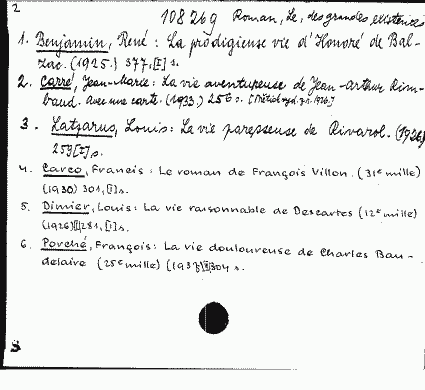 2
10826g Roman, Le, des grandes existences
1. Benjamin, René: La prodigieuse vie d'Honoré de Bal-
zac. (1925.) 377,[I] s.
2. Carré, Jean-Marie: La vie aventureuse de Jean-Arthur Rim-
baud. Avec une carte. (1933.) 256 s.
3. Latzarus, Louis: La vie paresseuse de Rivarol. (1926)
259[I] s.
4. Carco, Francis: Le roman de François Villon. (31e mille)
(1930) 301,[I] s.
5. Dimier, Louis: La vie raisonnable de Descartes (12e mille)
(1926)[I]281,[I] s.
6. Porché, François: La vie douloureuse de Charles Bau-
delaire (25e mille) (1937)[I]304 s.